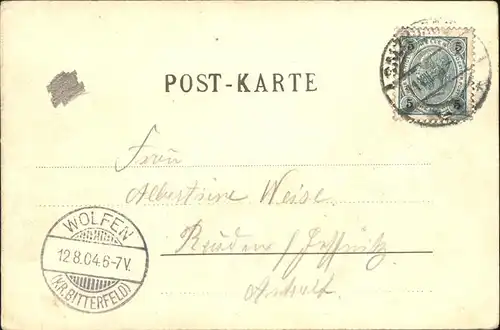 5 5
5 5
POST-KARTE
Frau
Albertine Weise
Reuden / Jeßnitz
Anhalt
WOLFEN
12.8.04.6-7V.
(KR.BITTERFELD)